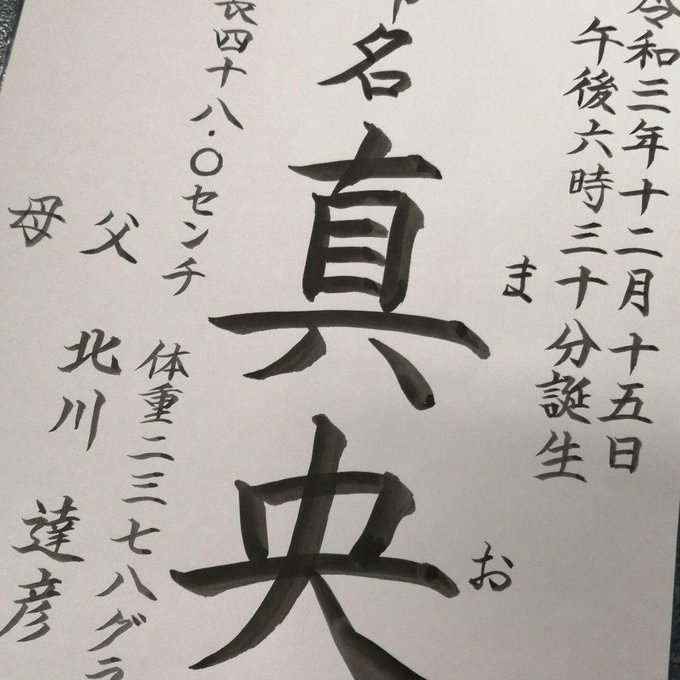 令和三年十二月十五日
午後六時三十分誕生
まお
命名 真央
長四十八・〇センチ
体重二三七八グラ
父 北川 達彦
母